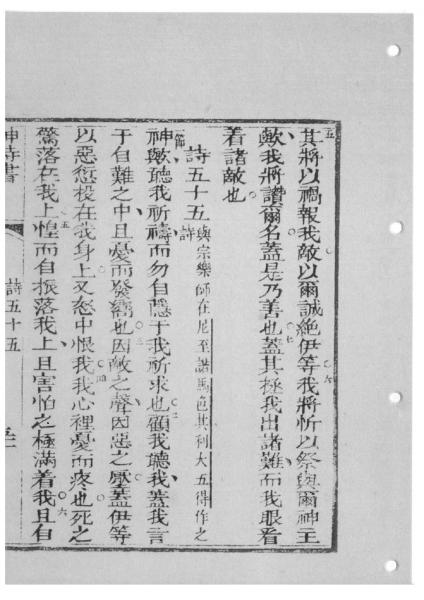 五其將以禍報我敵以爾誠絕伊等我將忻以祭與爾神主
歟我將讚爾名蓋是乃善也七蓋其拯我出諸難而我眼看
着諸敵也
詩五十五 與宗樂師在尼至諾馬色其利大五得作之詩
節神歟聽我祈禱而勿自隱于我祈求也二顧我聽我蓋我言
于自難之中且憂而發 也三因敵之聲因惡之壓蓋伊等
以惡愆投在我身上又怒中恨我四我心裡憂而疼也死之
驚落在我上五惶而自振落我上且害怕之極滿着我六且自
神詩書 詩五十五